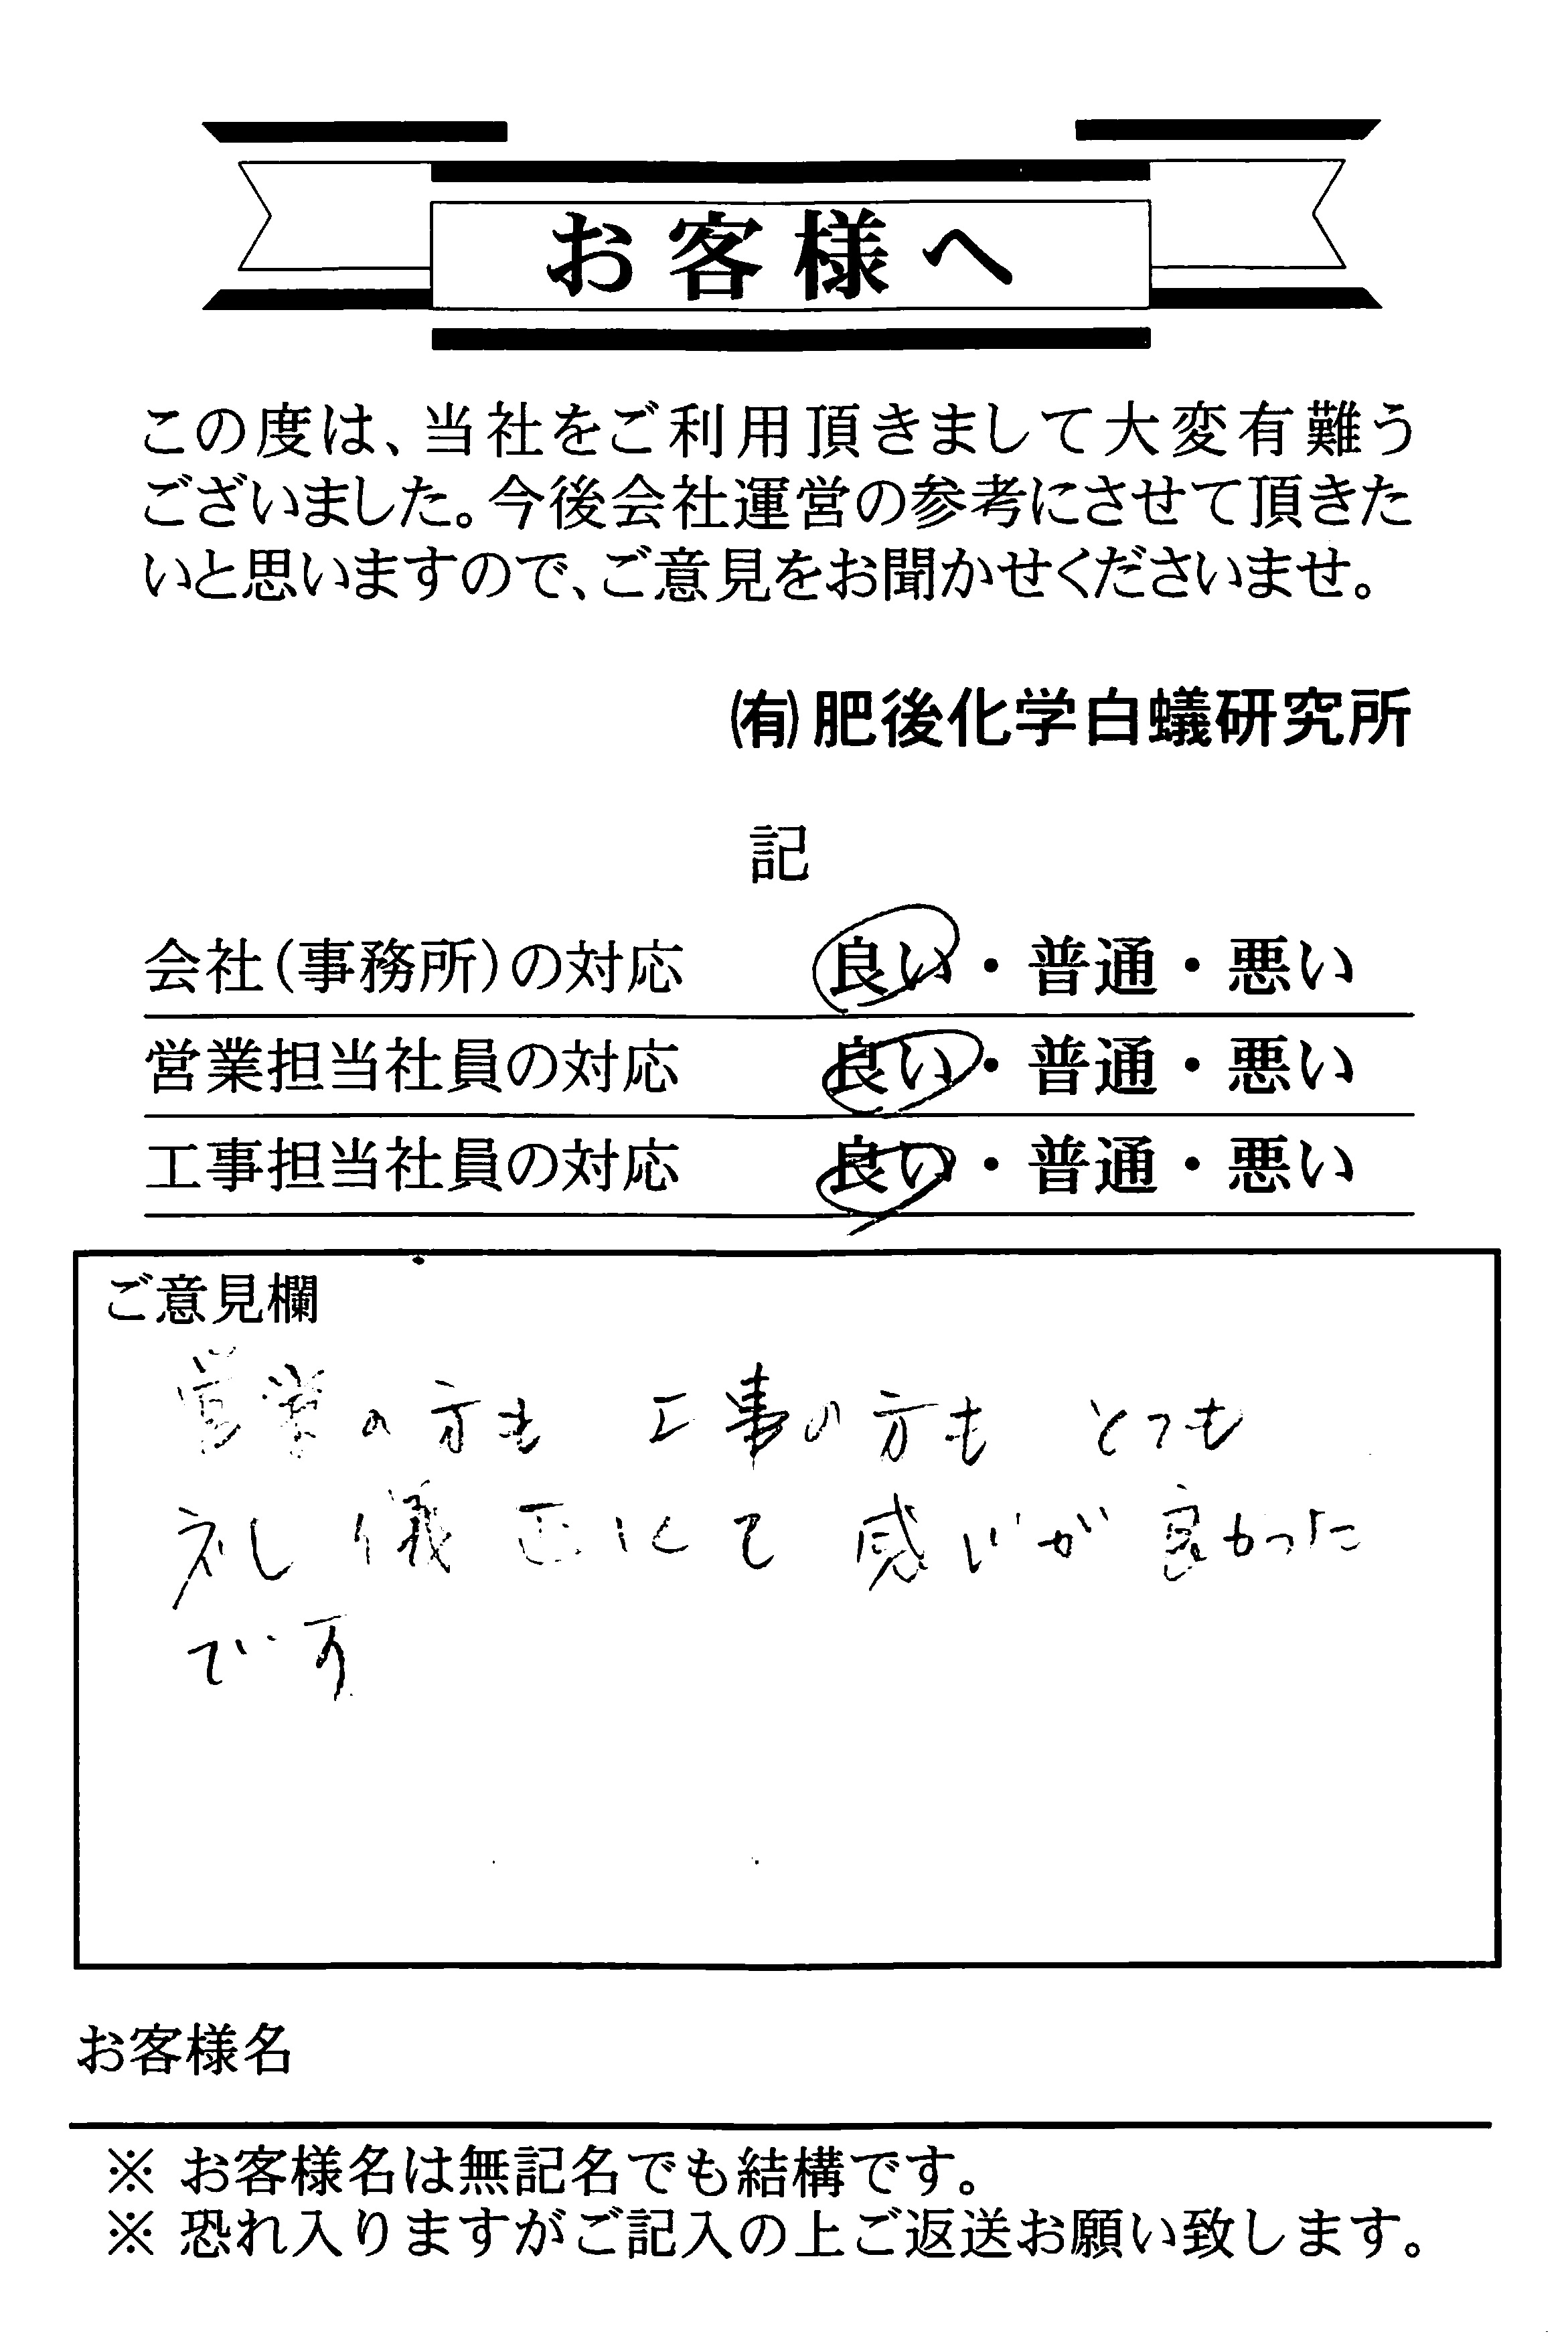 お客様へ
この度は、当社をご利用頂きまして大変有難う
ございました。今後会社運営の参考にさせて頂きた
いと思いますので、ご意見をお聞かせくださいませ。
㈲肥後化学白蟻研究所
記
会社(事務所)の対応 良い・普通・悪い
営業担当社員の対応 良い・普通・悪い
工事担当社員の対応 良い・普通・悪い
ご意見欄
営業の方も 工事の方も とても
礼儀正しくて 感じが良かった
です
お客様名
※ お客様名は無記名でも結構です。
※ 恐れ入りますがご記入の上ご返送お願い致します。